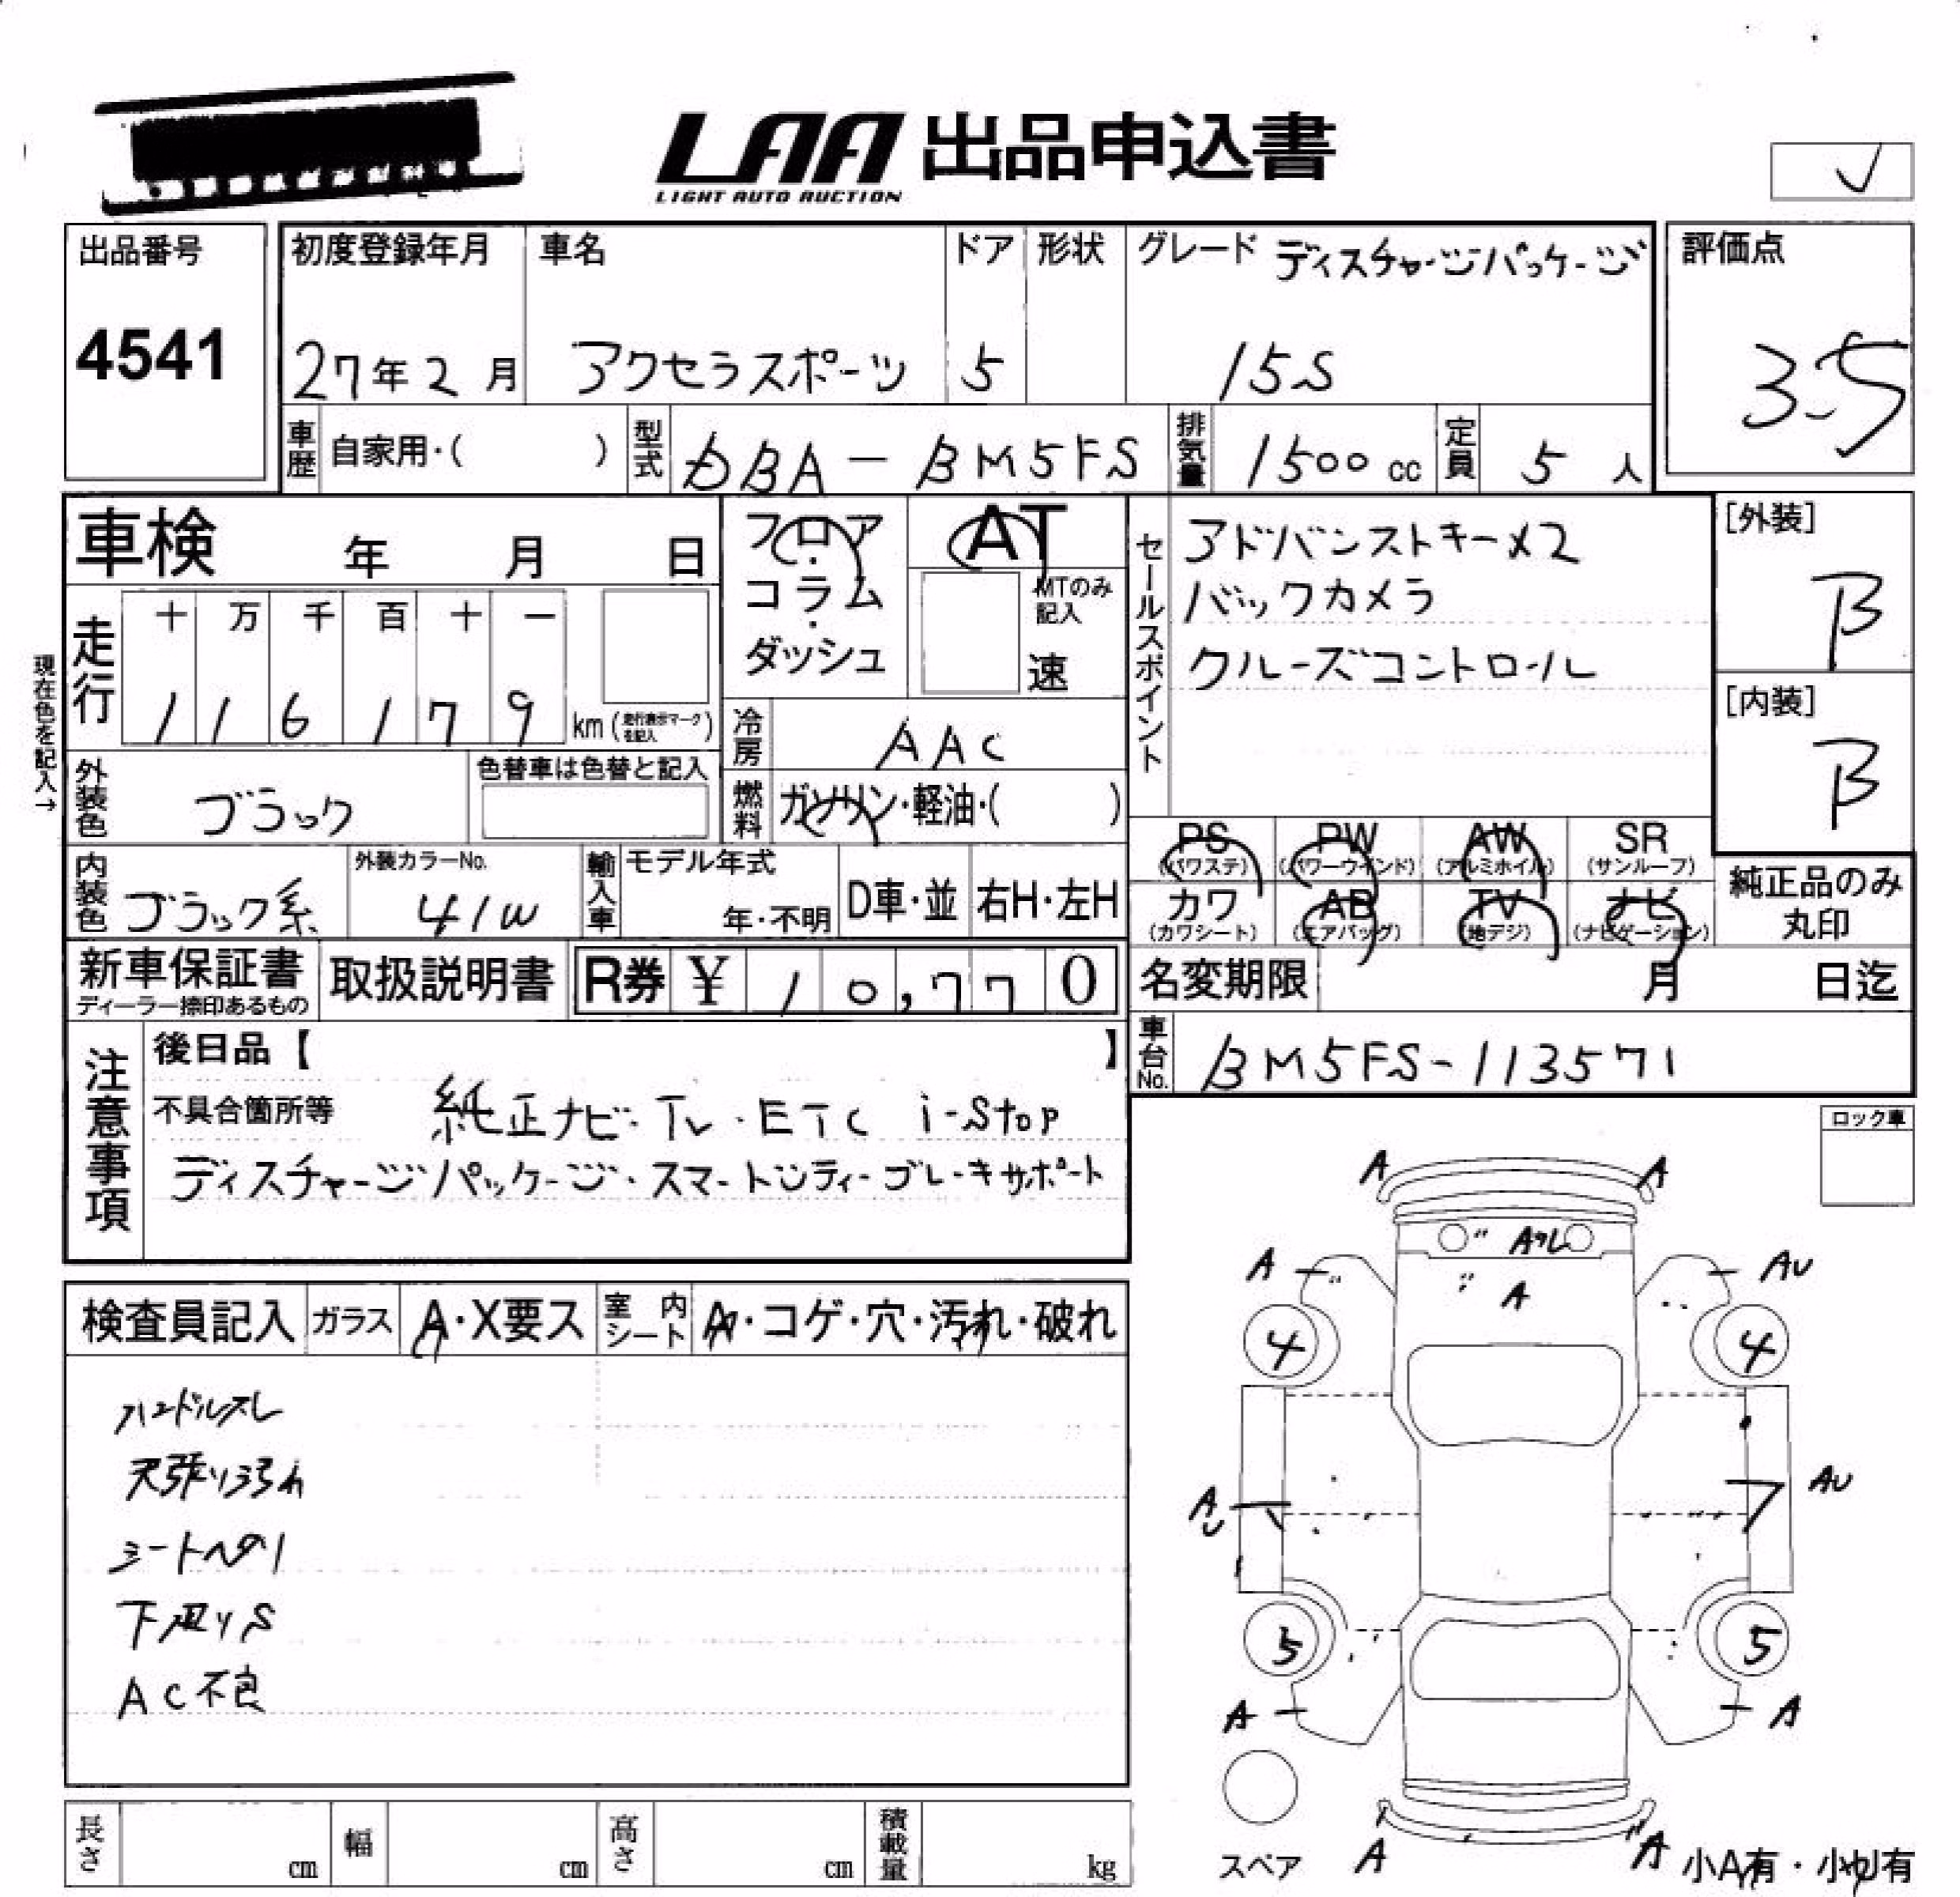 LAA 出品申込書
LIGHT AUTO AUCTION
出品番号
4541
初度登録年月
27年2月
車名
アクセラスポーツ
ドア
5
形状
グレード ディスチャージパッケージ
15S
評価点
3.5
車歴 自家用・( )
型式 DBA-BM5FS
排気量 1500cc
定員 5人
車検 年 月 日
フロア・コラム・ダッシュ
AT
MTのみ記入
速
セールスポイント
アドバンストキー×2
バックカメラ
クルーズコントロール
[外装]
B
[内装]
B
現在色を記入→
走行
十 万 千 百 十 一
1 1 6 1 7 9 km (走行表示マークを記入)
冷房 AAC
燃料 ガソリン・軽油・( )
外装色 ブラック
色替車は色替と記入
内装色 ブラック系
外装カラーNo.
41W
輸入車
モデル年式
年・不明
D車・並
右H・左H
PS (パワステ)
PW (パワーウインド)
AW (アルミホイル)
SR (サンルーフ)
カワ (カワシート)
AB (エアバッグ)
TV (地デジ)
ナビ (ナビゲーション)
純正品のみ丸印
新車保証書
ディーラー捺印あるもの
取扱説明書
R券 ¥10,770
名変期限 月 日迄
車台No. BM5FS-113571
注意事項
後日品【 】
不具合箇所等 純正ナビ・TV・ETC i-stop
ディスチャージパッケージ・スマートシティーブレーキサポート
ロック車
検査員記入
ガラス A・X要ス
室内シート A・コゲ・穴・汚れ・破れ
ハンドルスレ
天張り汚れ
シートヘタリ
下廻りS
AC不良
A A
A
A AU
A
4 4
AU AU
5 5
A A
A A
スペア
小A有・小U有
長さ cm
幅 cm
高さ cm
積載量 kg